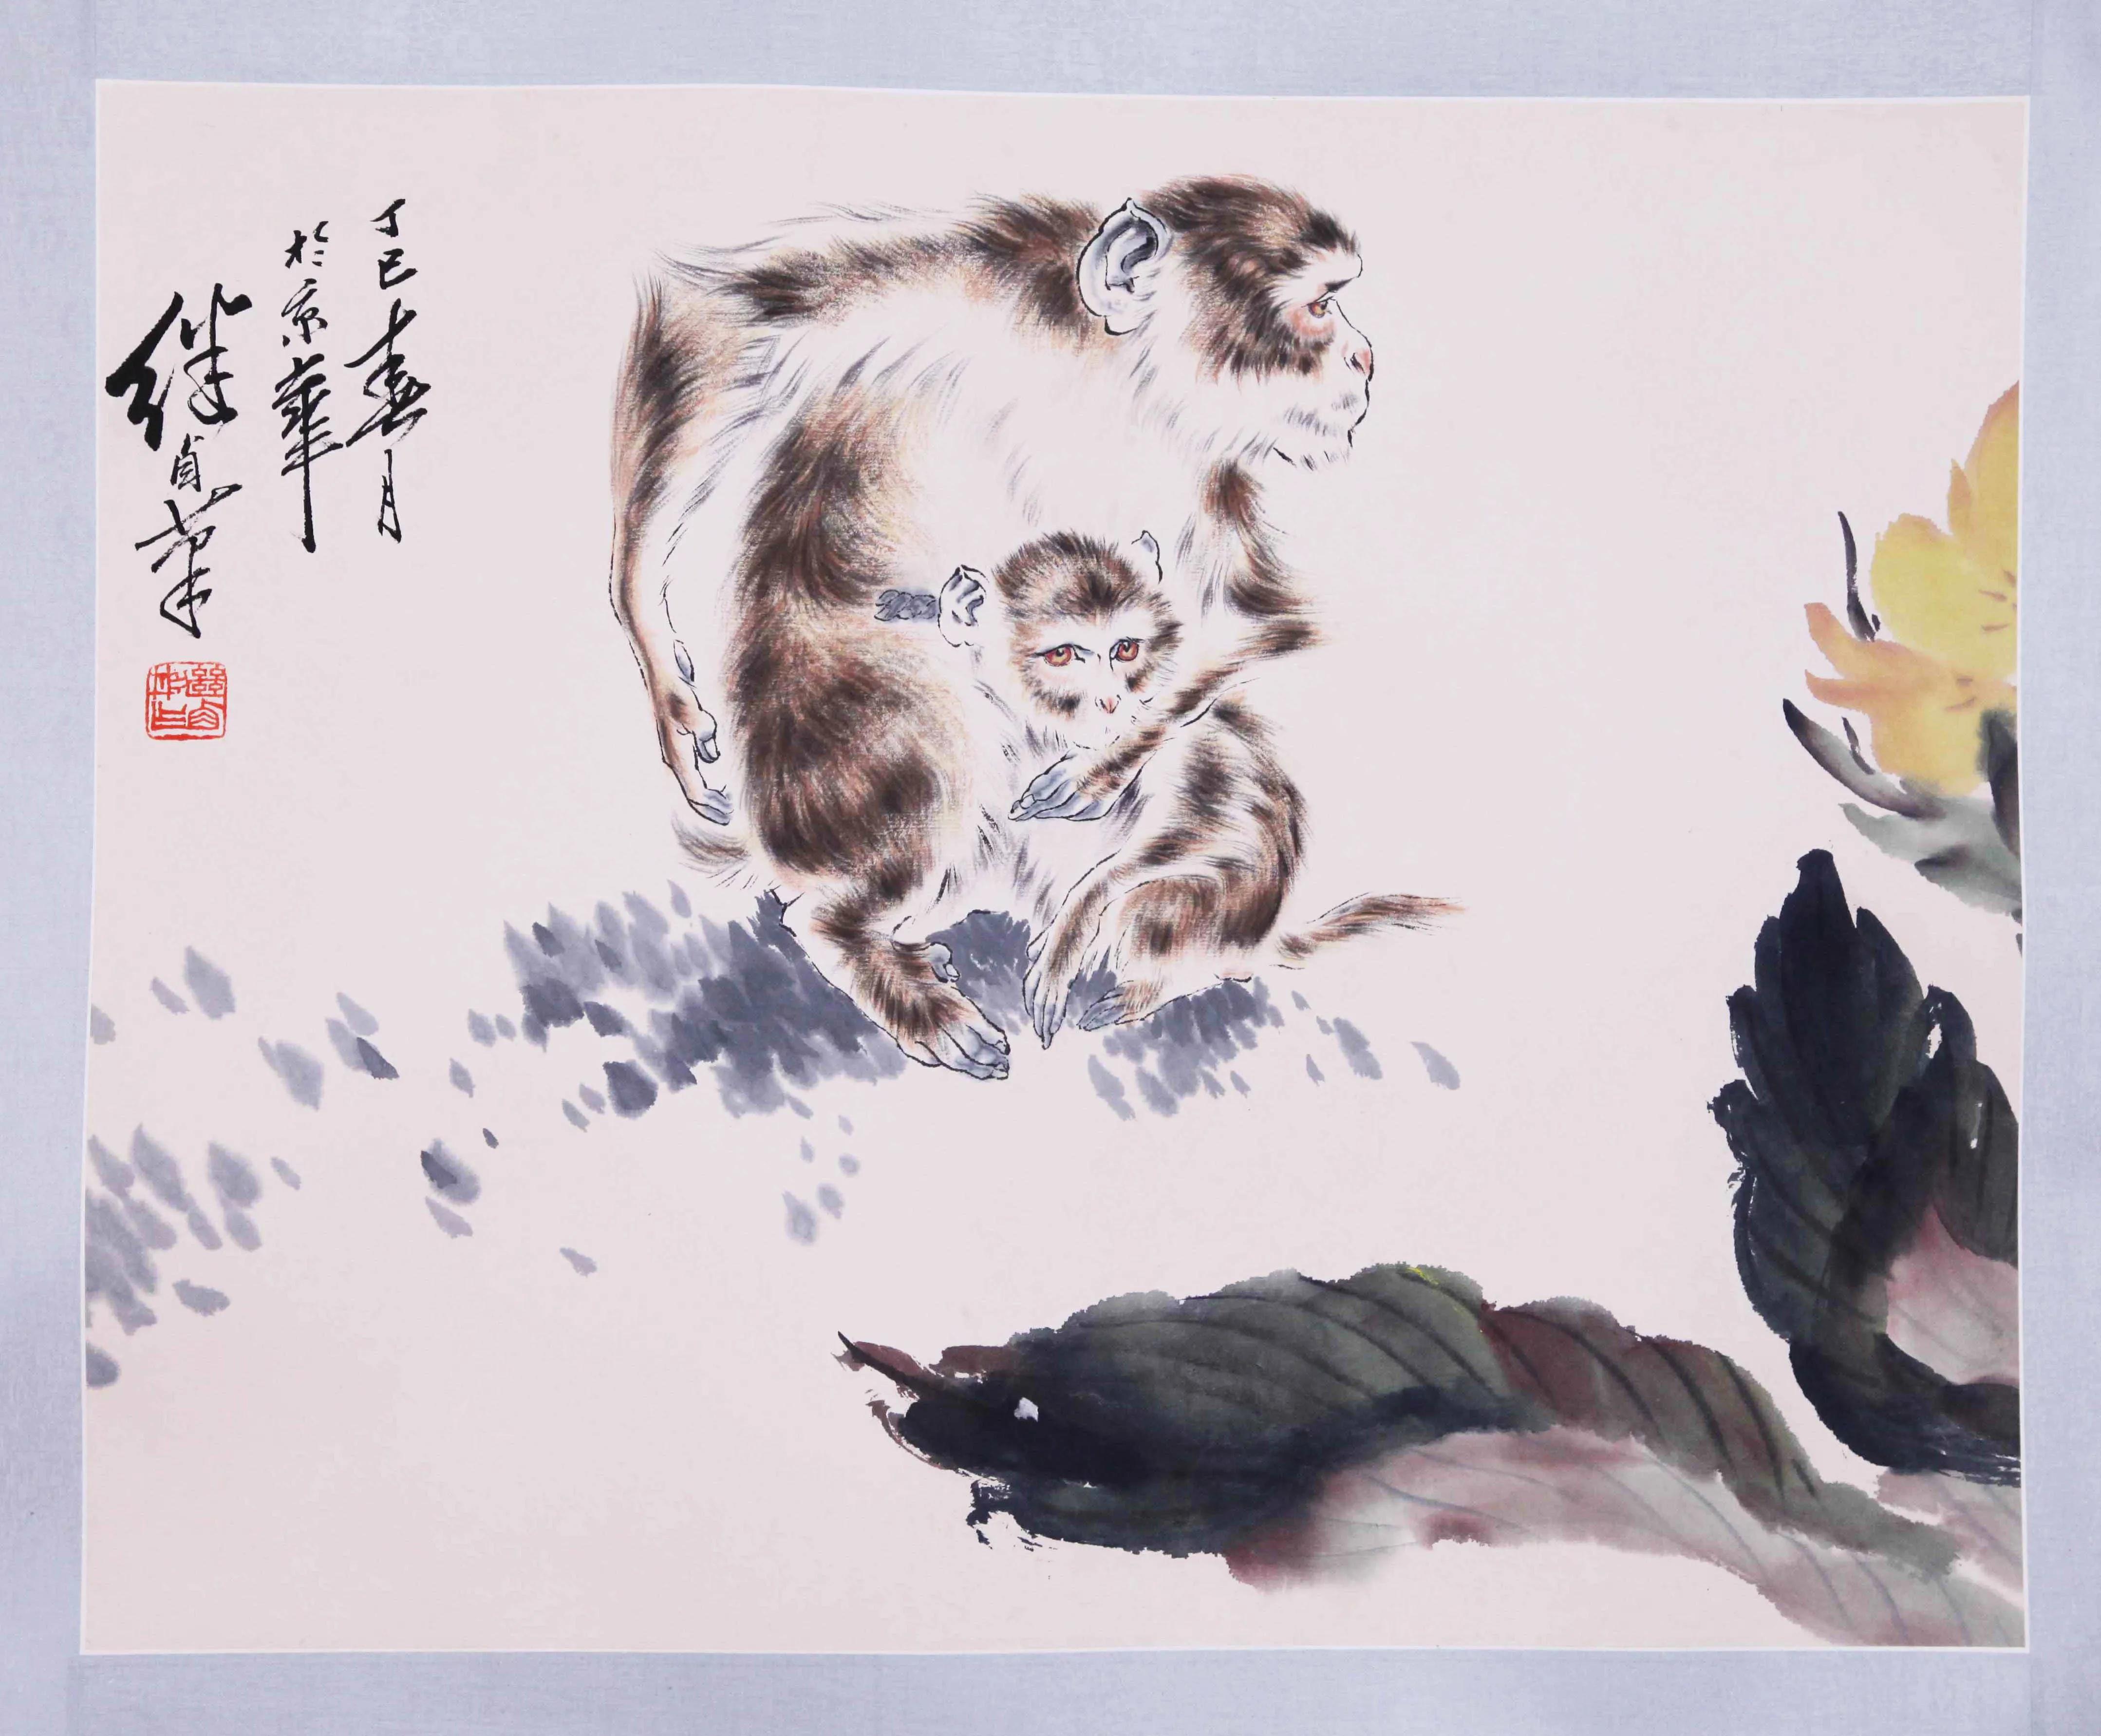 丁巳春月
於京華
继貞筆